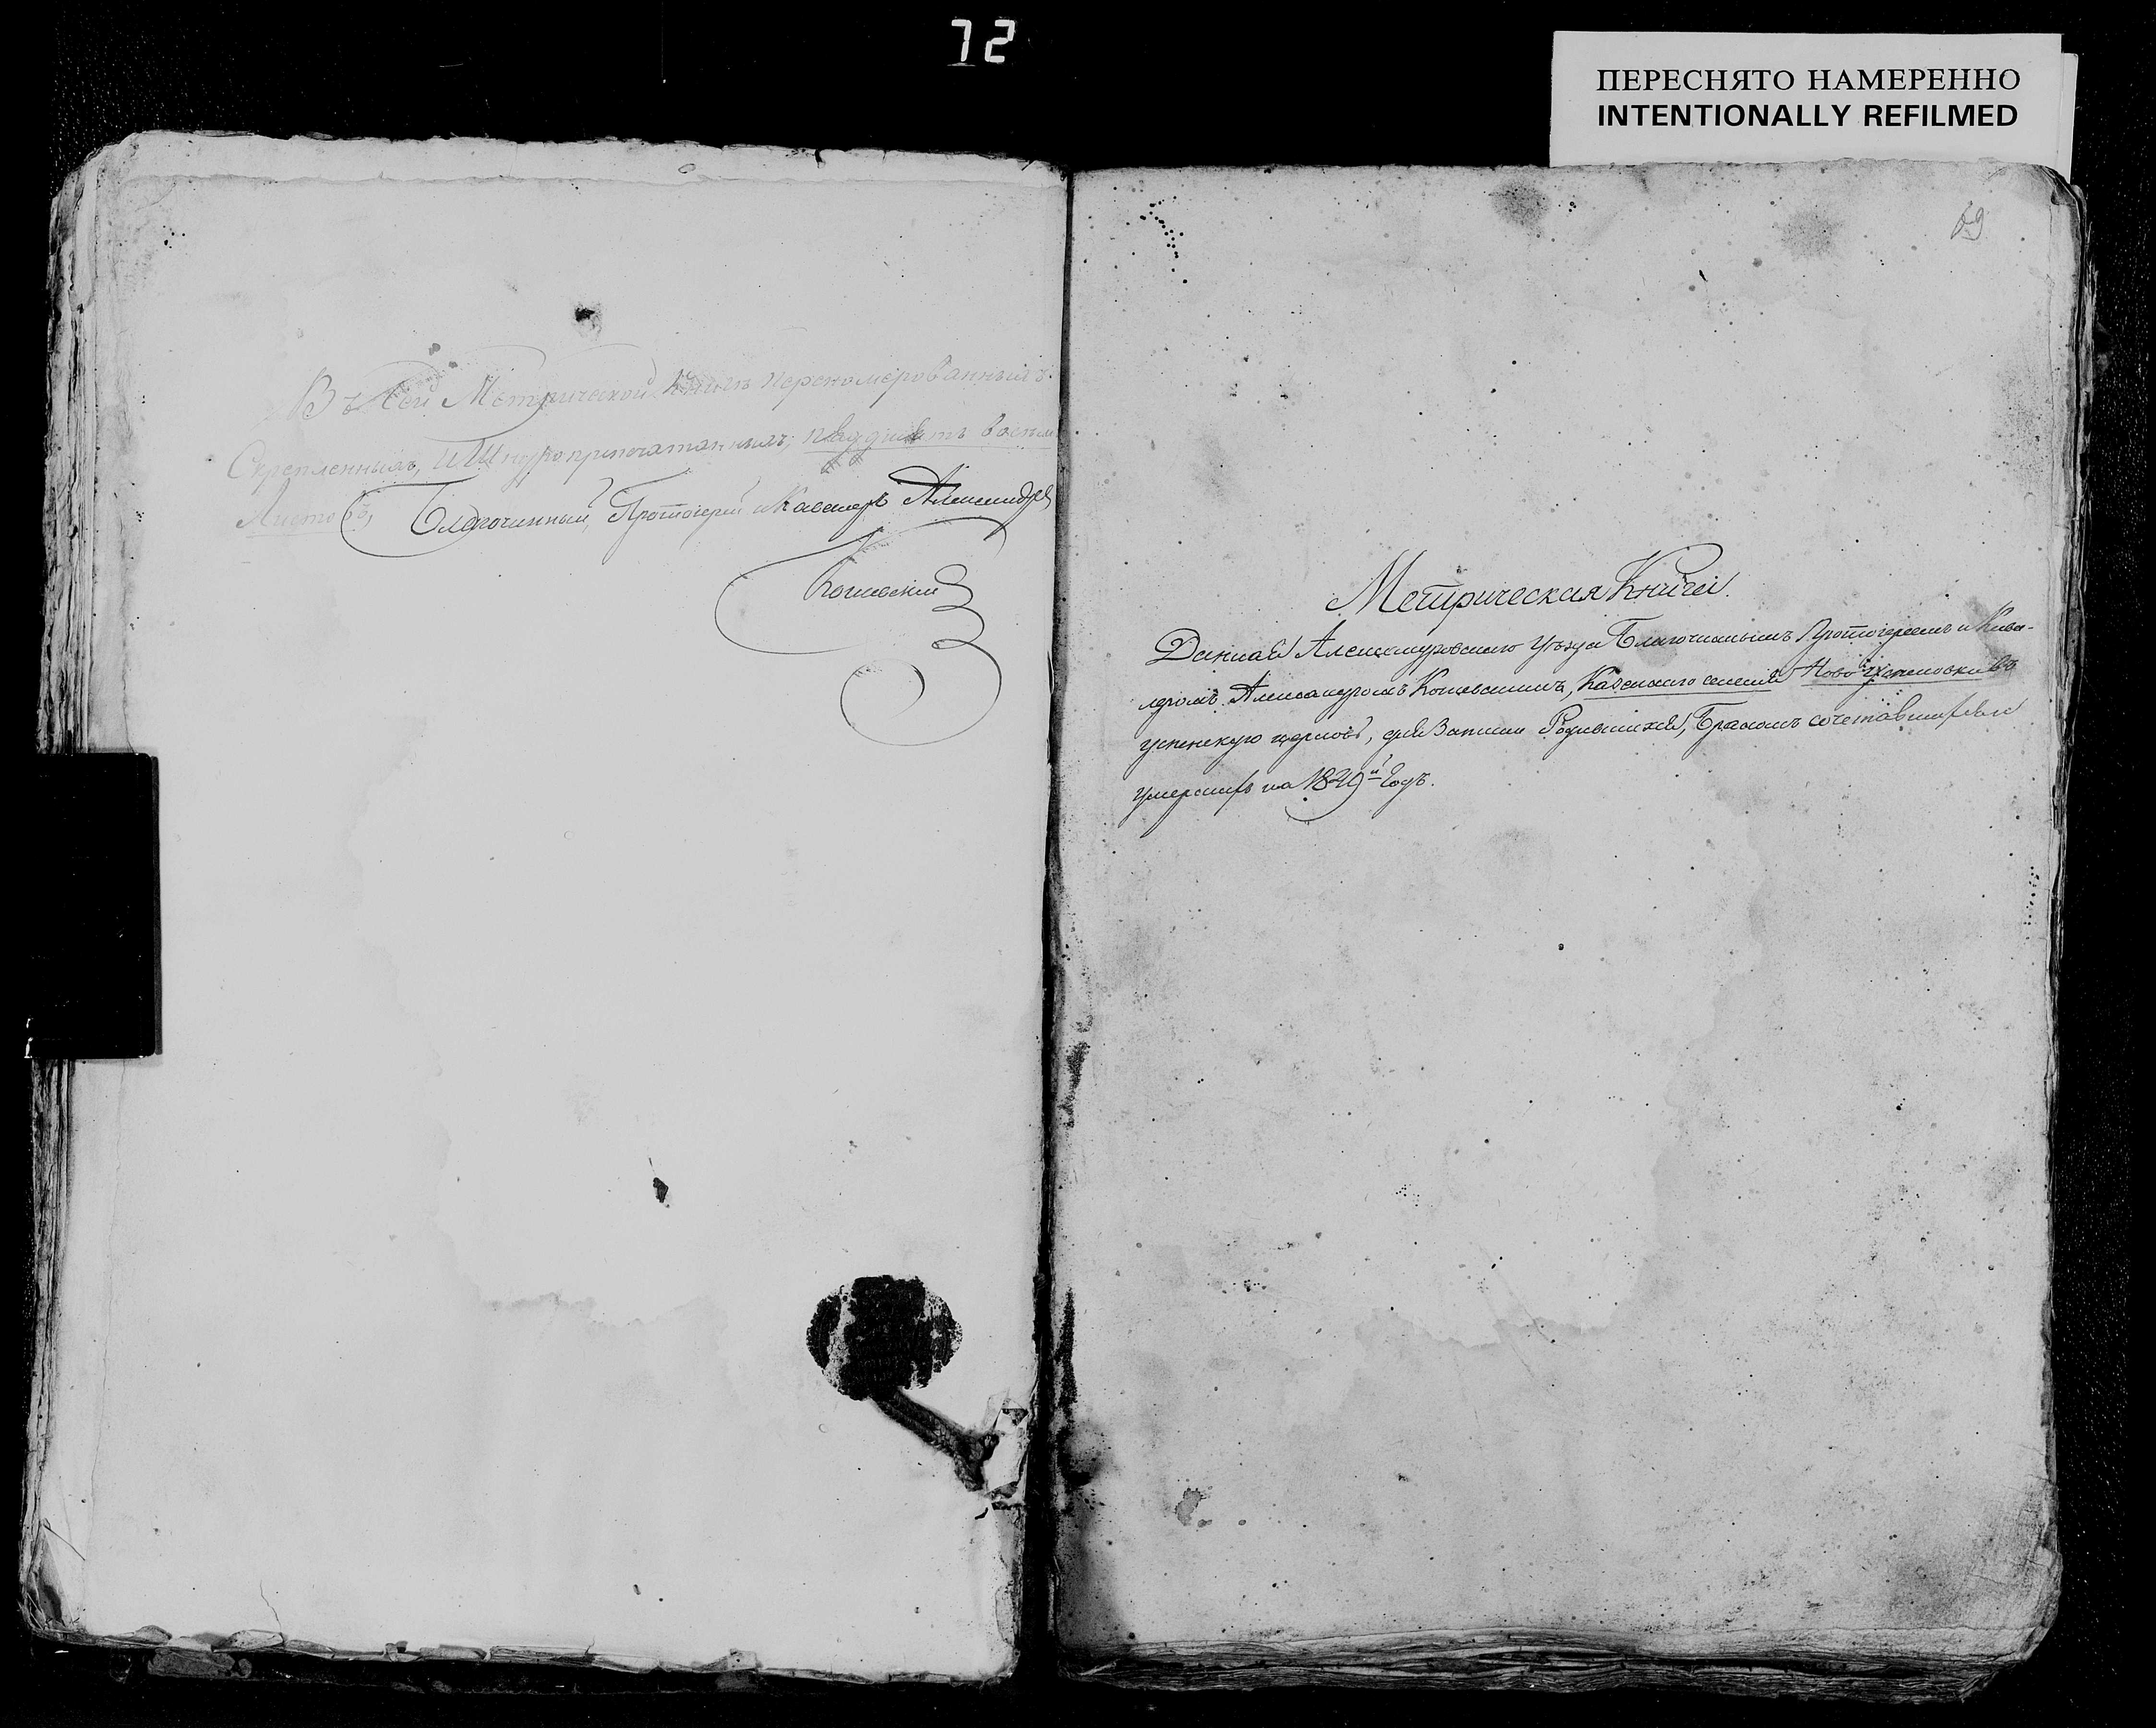 72
ПЕРЕСНЯТО НАМЕРЕННО
INTENTIONALLY REFILMED
Въ сей Метрической Книгѣ переномерованныхъ:
Скрепленныхъ, и Шнуроприпечатанныхъ,
Листовъ, Благочинный, Протоіерей и Кавалеръ Александръ
69
Метрическая Книга.
Данная Александровского Уѣзда Благочиннымъ Протоіереемъ и Кава-
леромъ Александромъ, Казенного селенія Ново Успеновки въ
успенскую церковь, для Записки Родившихся, Бракомъ сочетавшихся и
умершихъ на 1829й Годъ.